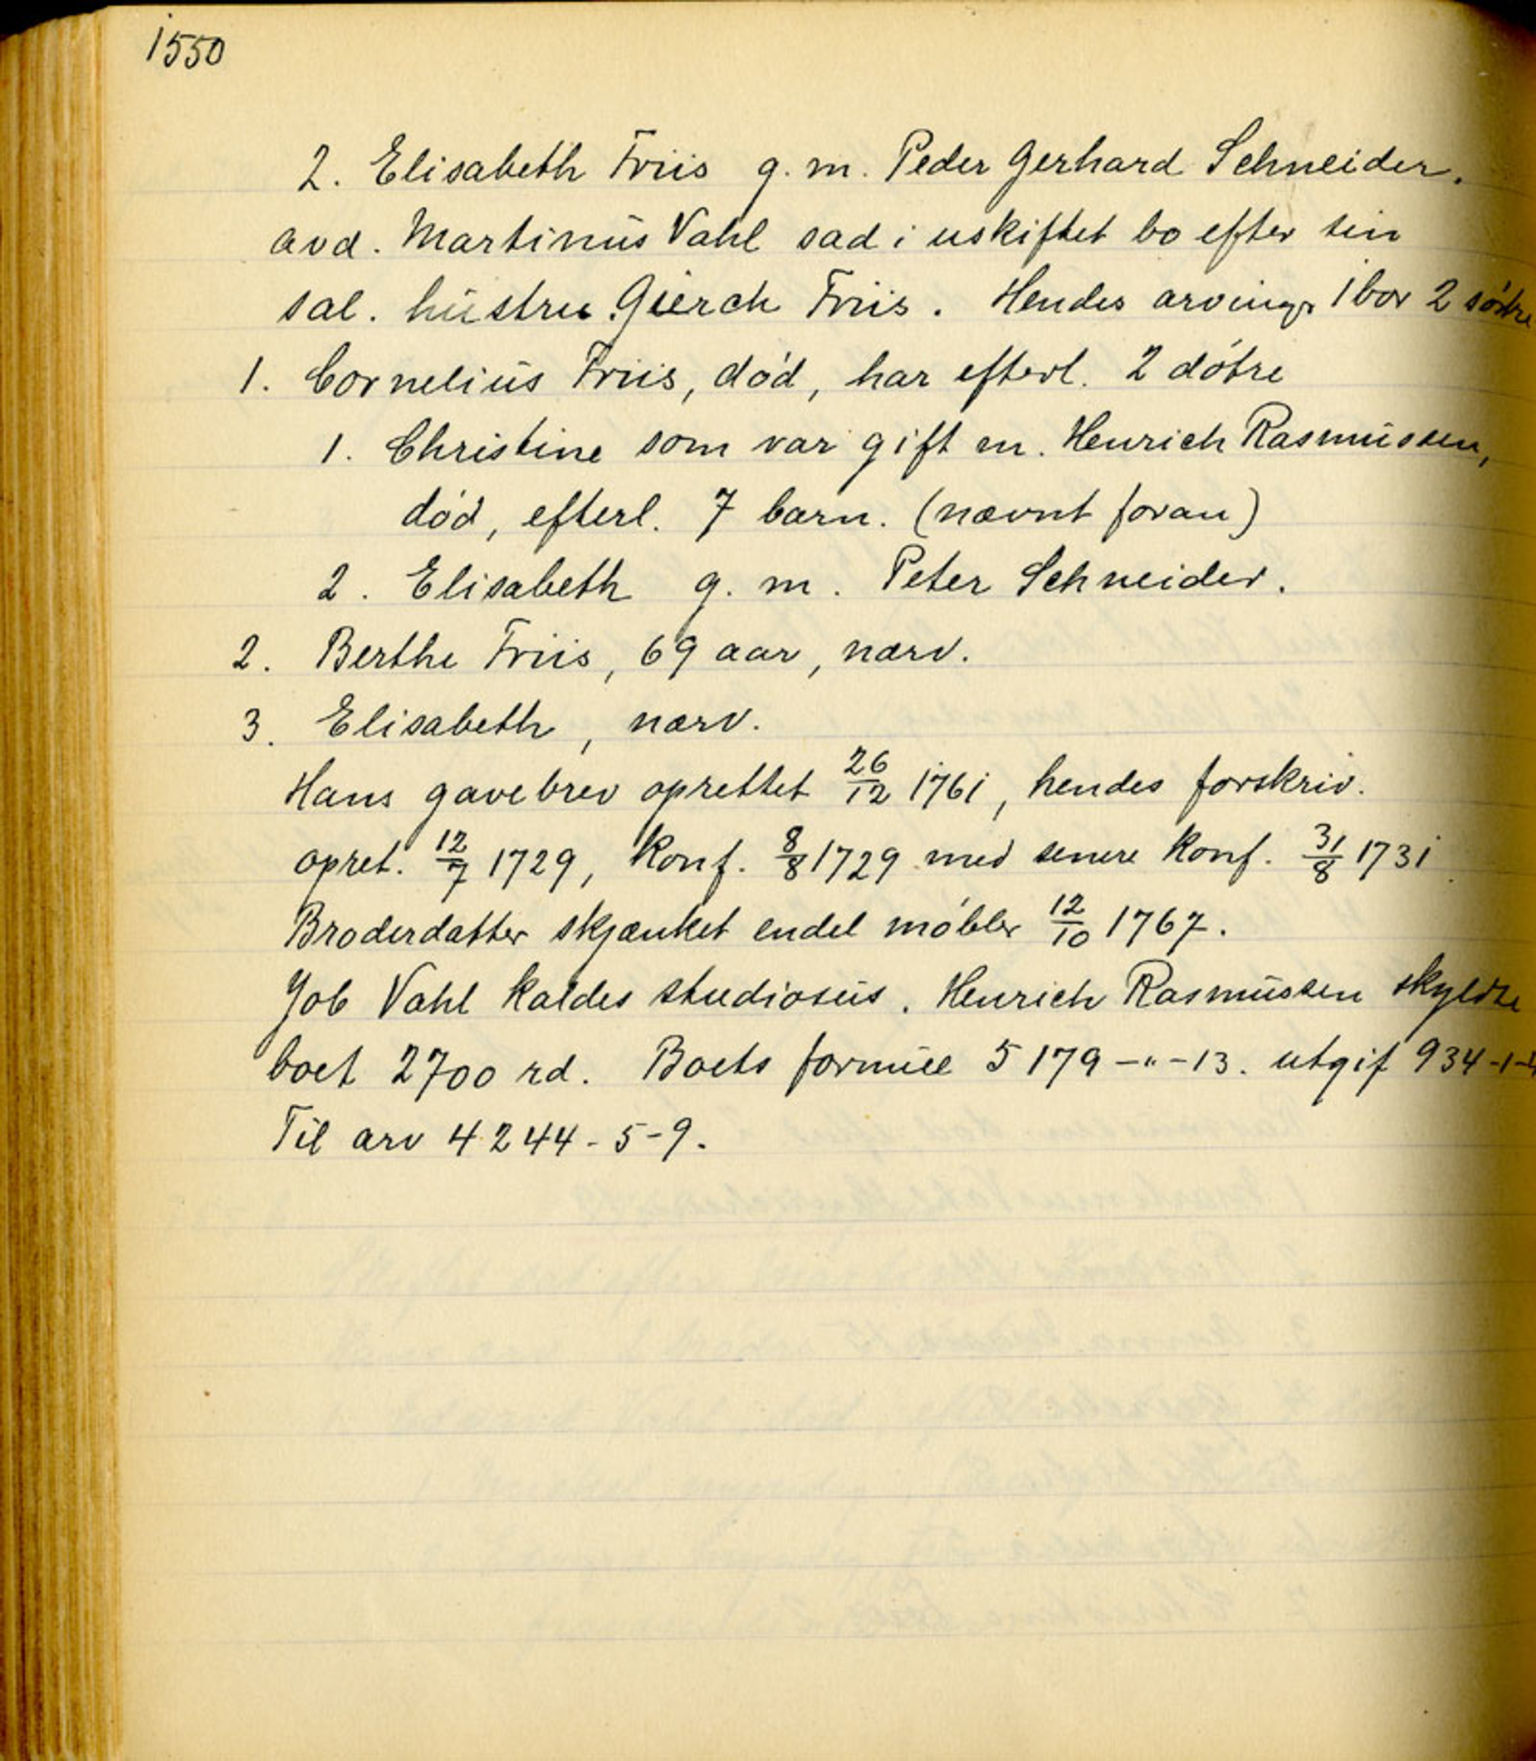 1550
2. Elisabeth Friis g. m. Peder Gerhard Schneider.
avd. Martinus Vahl sad i uskiftet bo efter sin
sal. hustru Gierch Friis. Hendes arvinger 1 bror 2 søstre
1. Cornelius Friis, død, har efterl. 2 døtre
1. Christine som var gift m. Henrich Rasmussen,
død, efterl. 7 barn. (nævnt foran)
2. Elisabeth g. m. Peter Schneider.
2. Berthe Friis, 69 aar, nærv.
3. Elisabeth, nærv.
Hans gavebrev oprettet 26/12 1761, hendes forskriv.
opret. 12/7 1729, konf. 8/8 1729 med senere konf. 31/8 1731
Broderdatter skjænket endel møbler 12/10 1767.
Job Vahl kaldes studiosus. Henrich Rasmussen skyldte
boet 2700 rd. Boets formue 5179 -"-13. utgif 934-1-4
Til arv 4244-5-9.